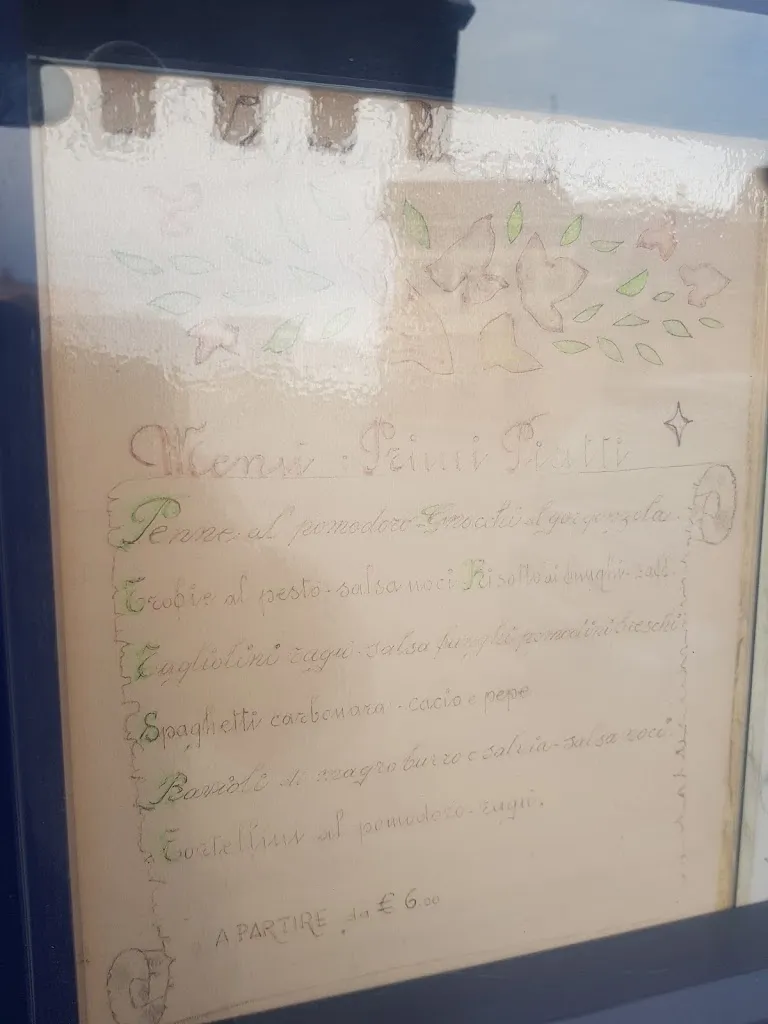 Menù: Primi Piatti
Penne al pomodoro - Gnocchi al gorgonzola
Trofie al pesto - salsa noci Risotto ai funghi -
Tagliolini ragù - salsa funghi pomodini freschi
Spaghetti carbonara - cacio e pepe
Ravioli di magro burro e salvia - salsa noci
Tortellini al pomodoro - ragù.
A PARTIRE da € 6.00